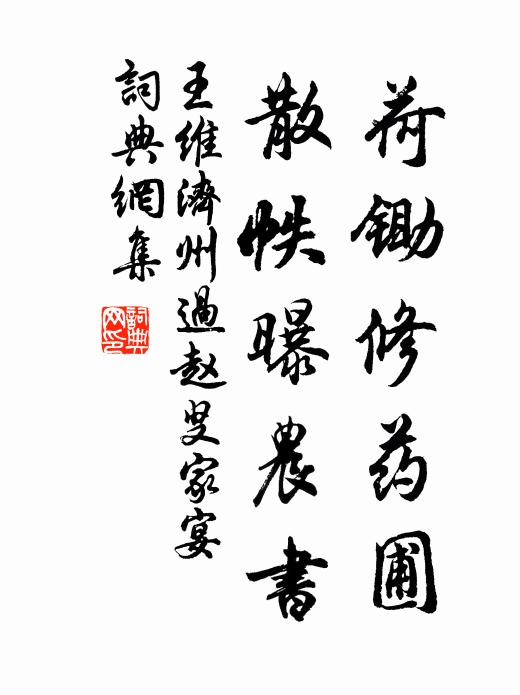 荷锄修药圃
散帙曝農書
王维濟州過赵叟家宴
詞典網集
詞典网印